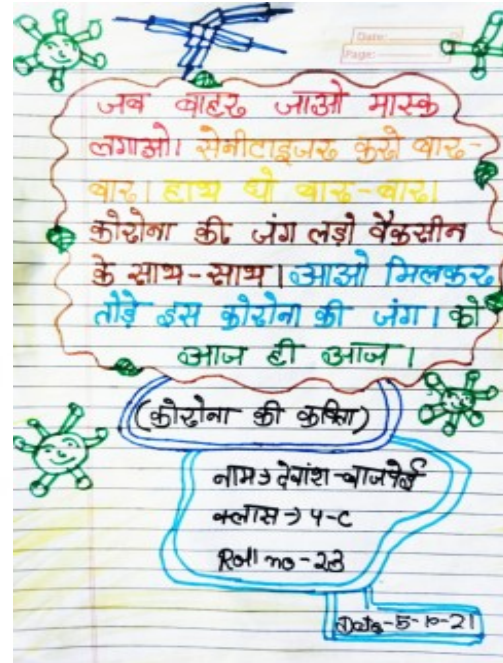 Date:
Page:
जब बाहर जाओ मास्क
लगाओ। सेनीटाइजर करो बार-
बार। हाथ धो बार-बार।
कोरोना की जंग लड़ो वैकसीन
के साथ-साथ। आओ मिलकर
तोड़े इस कोरोना की जंग। को
आज ही आज।
(कोरोना की कविता)
नाम → देवांश-वाजपेई
क्लास → 4-C
Roll no - 23
Date-5-10-21